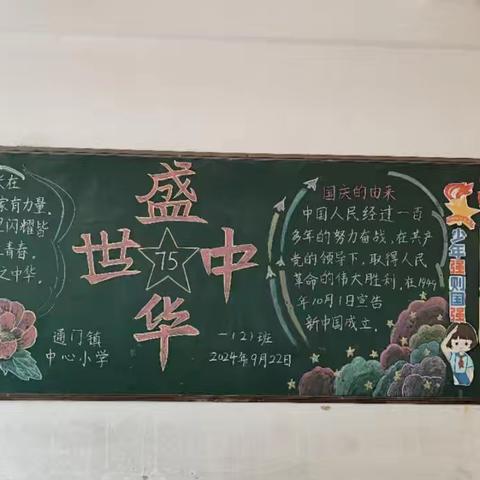 在
家有力量,
闪耀皆
青春,
之中华.
通门镇
中心小学
盛
世 75 中
华
一(2)班
2024年9月22日
国庆的由来
中国人民经过一百
多年的努力奋战,在共产
党的领导下,取得人民
革命的伟大胜利,在1949
年10月1日宣告
新中国成立.
少年强则国强